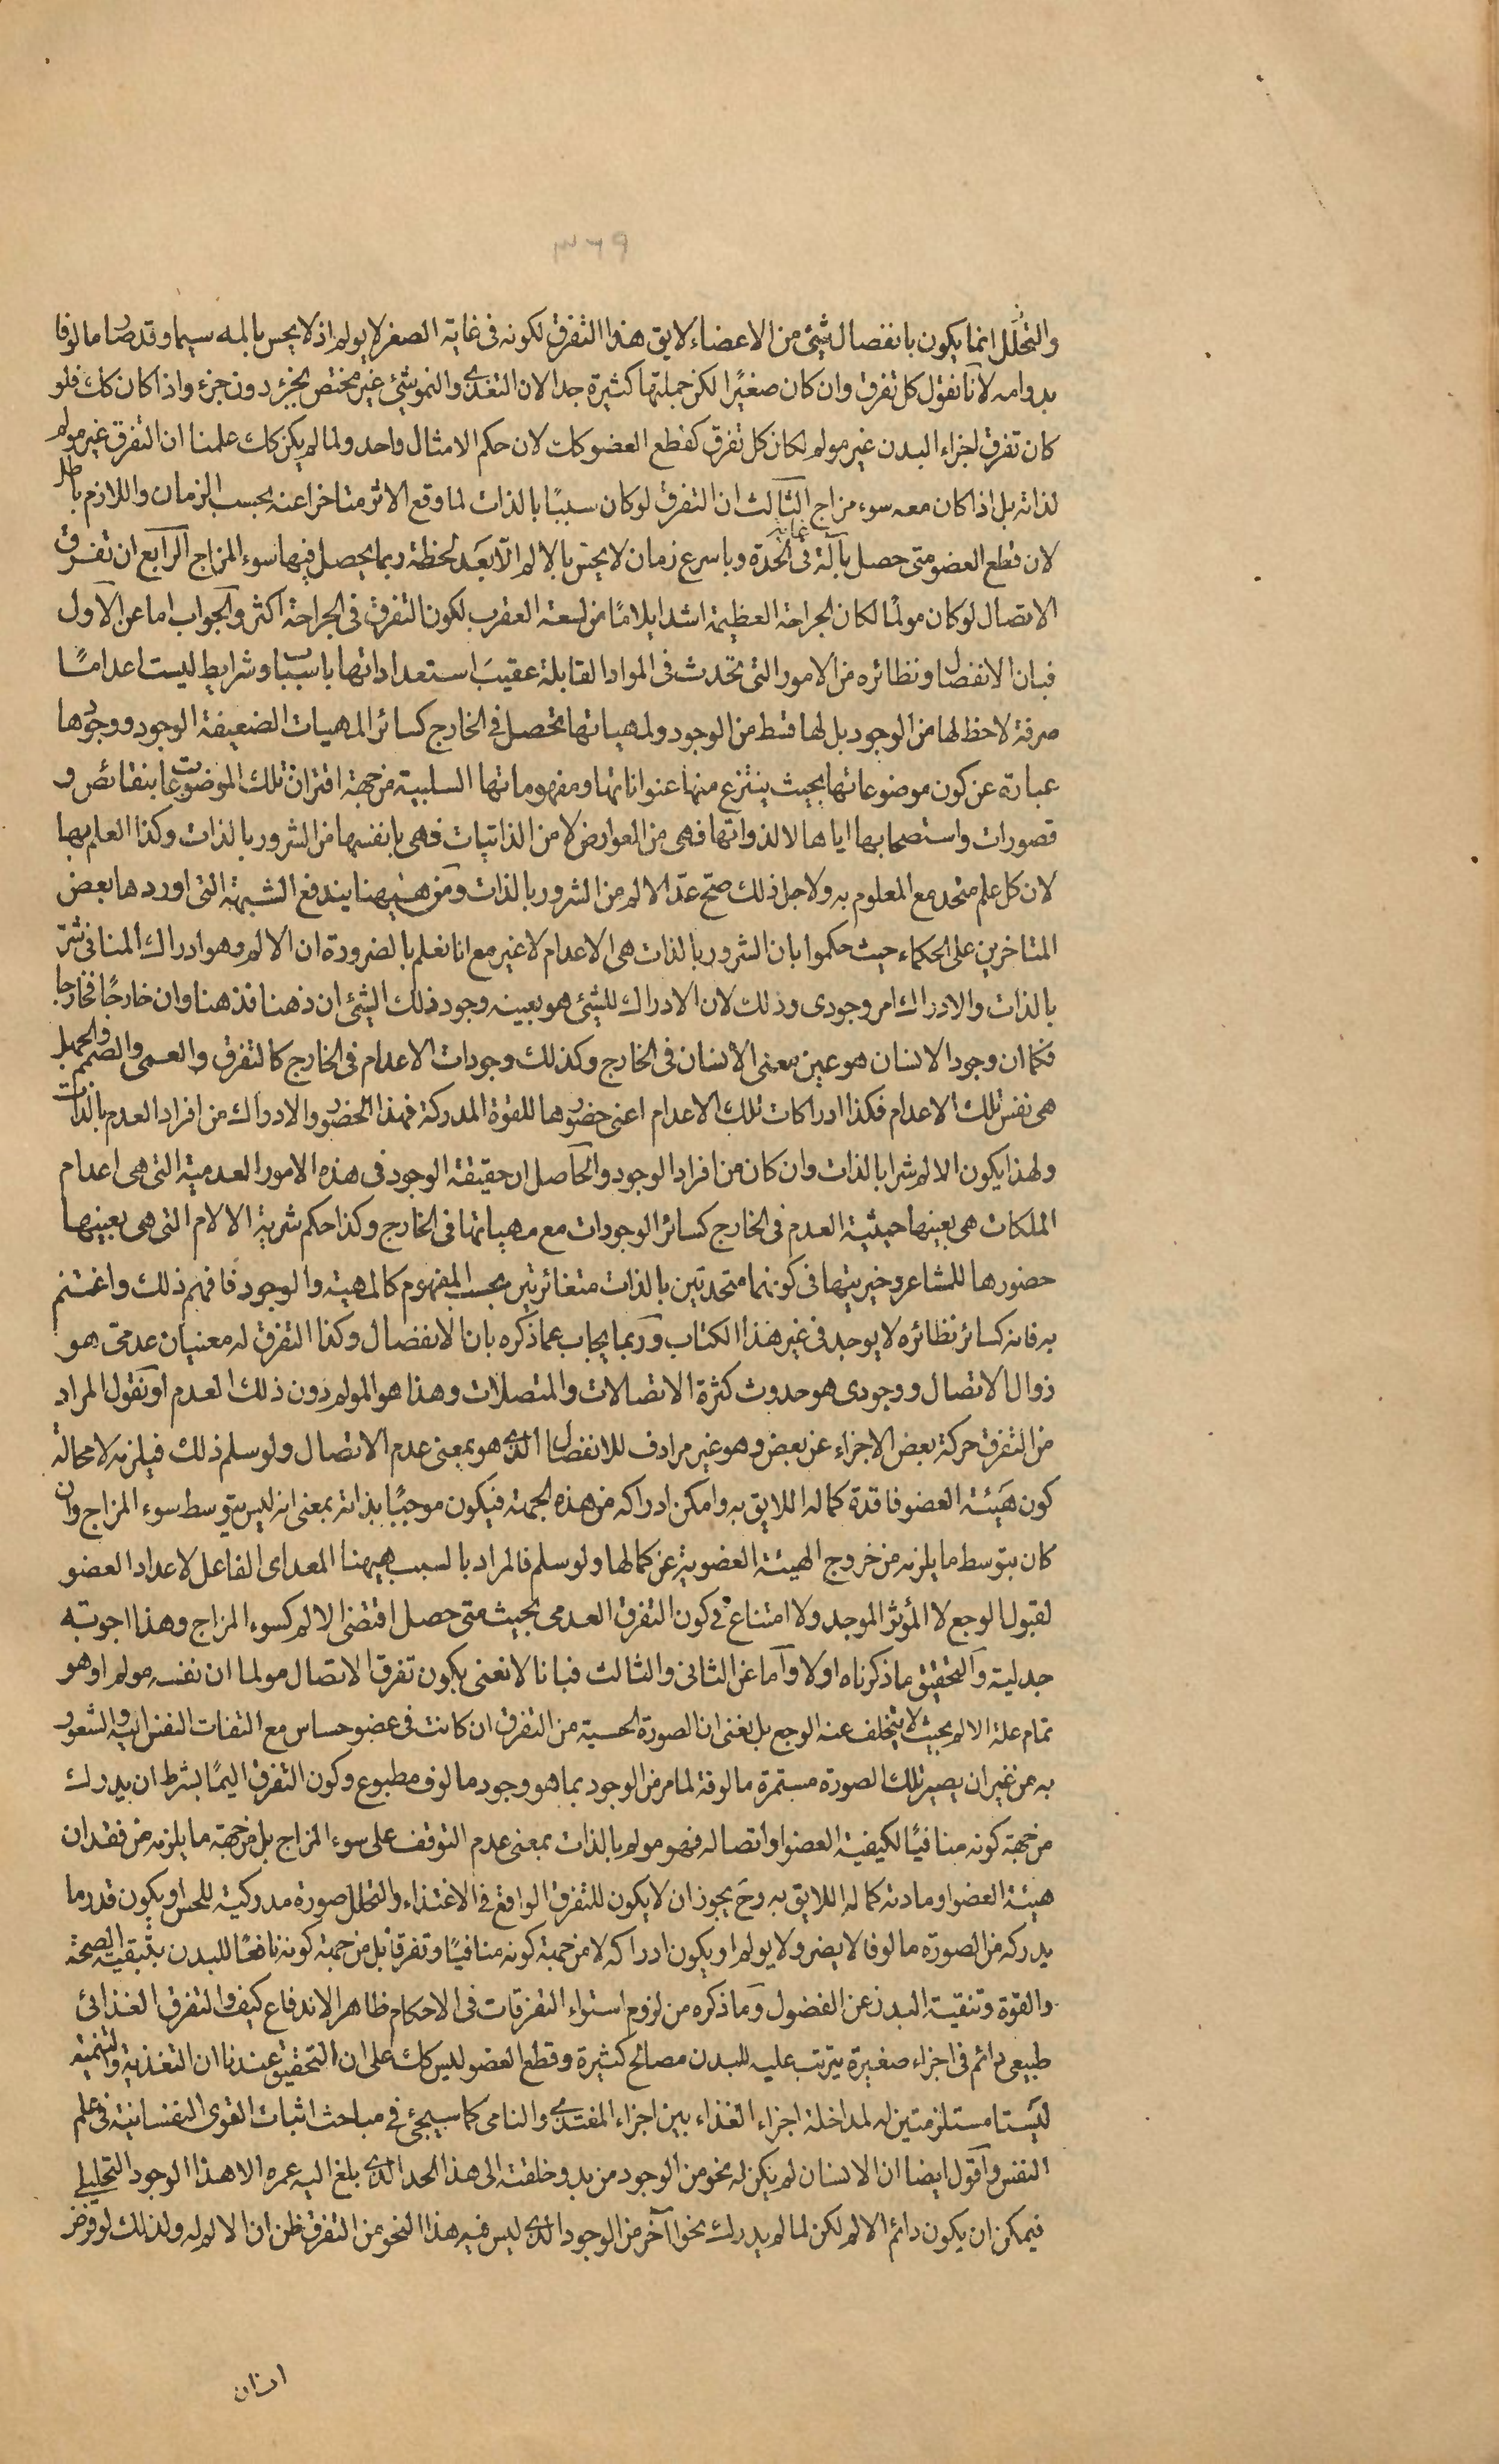 ٣٢٩
والتحلل انما يكون بانفصال شئ من الاعضاء لايق هذا التفرق لكونه فى غاية الصغر لا يولم اذ لا يحس بالمه سيما وقد صار مالوفا
بدوامه لانا نقول كل تفرق وان كان صغيرًا لكن جملتها كثيرة جدا لان التغذى والنمو شئ غير مختص بجزء دون جزء واذا كان كك فلو
كان تفرق اجزاء البدن غير مولم لكان كل تفرق كقطع العضو كك لان حكم الامثال واحد ولما لم يكن كك علمنا ان التفرق غير مولم
لذاته بل اذا كان معه سوء مزاج الثالث ان التفرق لو كان سببًا بالذات لما وقع الاثر متاخرا عنه بحسب الزمان واللازم باطل
لان قطع العضو متى حصل بآلة فى غاية الحدة وباسرع زمان لا يحس بالالم الّا بعَد لحظة ربما يحصل فيها سوء المزاج الرابع ان تفرق
الاتصال لو كان مولمًا لكان الجراحة العظيمة اشد ايلامًا من لسعة العقرب لكون التفرق فى الجراحة اكثر والجواب اما عن الاول
فبان الانفصال ونظائره من الامور التى تحدث فى المواد القابلة عقيبَ استعداداتها باسباب وشرايط ليست اعدامًا
صرفة لا حظ لها من الوجود بل لها قسط من الوجود ولمهياتها تحصل فى الخارج كسائر المهيات الضعيفة الوجود ووجودها
عبارة عن كون موضوعاتها بحيث ينتزع منها عنواناتها ومفهوماتها السلبية من جهة اقتران تلك الموضوعات بنقائص و
قصورات واستصحابها اياها لا لذواتها فهى من العوارض لا من الذاتيات فهى بانفسها من الشرور بالذات وكذا العلم بها
لان كل علم متحد مع المعلوم به ولاجل ذلك صح عدّ الالم من الشرور بالذات ومن هيهنا يندفع الشبهة التى اوردها بعض
المتاخرين على الحكماء حيث حكموا بان الشرور بالذات هى الاعدام لا غير مع انا نعلم بالضرورة ان الالم وهو ادراك المنافى شرّ
بالذات والادراك امر وجودى وذلك لان الادراك للشئ هو بعينه وجود ذلك الشئ ان ذهنا فذهنا وان خارجًا فخارجا
فكما ان وجود الانسان هو عين معنى الانسان فى الخارج وكذلك وجودات الاعدام فى الخارج كالتفرق والعمى والصمم والجهل
هى نفس تلك الاعدام فكذا ادراكات تلك الاعدام اعنى حضورها للقوة المدركة فهذا الحضور والادراك من افراد العدم بالذات
ولهذا يكون الالم شرا بالذات وان كان من افراد الوجود والحاصل ان حقيقة الوجود فى هذه الامور العدمية التى هى اعدام
الملكات هى بعينها حيثية العدم فى الخارج كسائر الوجودات مع مهياتها فى الخارج وكذا حكم شرية الالام التى هى بعينها
حضورها للمشاعر وخيريتها فى كونهما متحدتين بالذات متغائرتين بحسب المفهوم كالمهية والوجود فافهم ذلك واغتنم
به فانه كسائر نظائره لا يوجد فى غير هذا الكتاب وربما يجاب عما ذكره بان الانفصال وكذا التفرق له معنيان عدمى هو
زوال الاتصال ووجودى هو حدوث كثرة الاتصالات والمتصلات وهذا هو المولم دون ذلك العدم او نقول المراد
من التفرق حركة بعض الاجزاء عن بعض وهو غير مرادف للانفصال الذى هو بمعنى عدم الاتصال ولو سلم ذلك فيلزمه لا محالة
كون هيئة العضو فاقدة كماله اللايق به وامكن ادراكه من هذه الجهة فيكون موجبًا بذاته بمعنى انه ليس بتوسط سوء المزاج وان
كان بتوسط ما يلزمه من خروج الهيئة العضوية عن كمالها ولو سلم فالمراد بالسبب هيهنا المعد اى الفاعل لاعداد العضو
لقبول الوجع لا المؤثر الموجد ولا امتناع فى كون التفرق العدمى بحيث متى حصل اقتضى الالم كسوء المزاج وهذا اجوبته
جدلية والتحقيق ما ذكرناه اولا واما عن الثانى والثالث فبانا لا نعنى بكون تفرق الاتصال مولما ان نفسه مولم او هو
تمام علة الالم بحيث لا يتخلف عنه الوجع بل نعنى ان الصورة الحسية من التفرق ان كانت فى عضو حساس مع التفات النفس اليه والشعور
به من غير ان يصير تلك الصورة مستمرة مالوفة لما مر من الوجود بما هو وجود مالوف مطبوع وكون التفرق اليمًا بشرط ان يدرك
من جهة كونه منافيًا لكيفية العضو او اتصاله فهو مولم بالذات بمعنى عدم التوقف على سوء المزاج بل من جهة ما يلزمه من فقدان
هيئة العضو او مادته كماله اللايق به وح يجوز ان لا يكون للتفرق الواقع فى الاغتذاء والتحلل صورة مدركية للحس او يكون قدر ما
يدركه من الصورة مالوفا لا يضر ولا يولم او يكون ادراكه لا من جهة كونه منافيًا وتفرقا بل من جهة كونه نافعًا للبدن بتبقية الصحة
والقوة وتنقية البدن عن الفضول وما ذكره من لزوم استواء التفرقات فى الاحكام ظاهر الاندفاع كيف والتفرق الغذائى
طبيعى دائم فى اجزاء صغيرة يترتب عليه للبدن مصالح كثيرة وقطع العضو ليس كك على ان التحقيق عندنا ان التغذية والتنمية
ليستا مستلزمتين له لمداخلة اجزاء الغذاء بين اجزاء المغتذى والنامى كما سيجئ فى مباحث اثبات القوى النفسانية فى علم
النفس واقول ايضا ان الانسان لم يكن له نحو من الوجود من بدو خلقته الى هذا الحد الذى بلغ اليه عمره الا هذا الوجود التحليلى
فيمكن ان يكون دائم الالم لكن لما لم يدرك نحوا آخر من الوجود الذى ليس فيه هذا النحو من التفرق ظن ان لا الم له ولذلك لو فرض